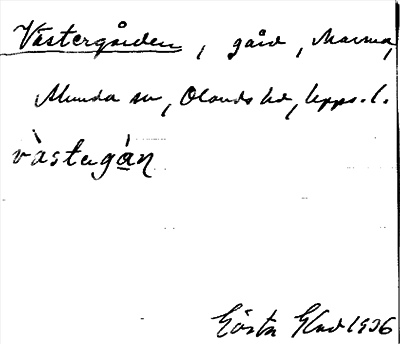 Västergården, gård, Marma,
Alunda sn, Olands hd, Upps. l.
västegán
Gösta Glad 1936